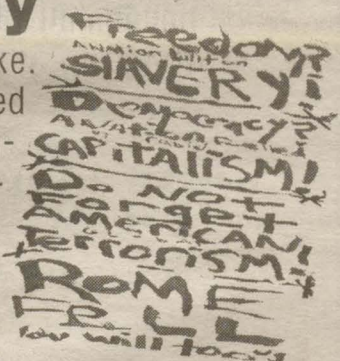 y
ke.
ed
-
Freedom?
SLAVERY!
Democracy?
CAPITALISM!
Do NOT
Forget
AMERICAN!
TerrorISM!
ROME
FELL
you will too